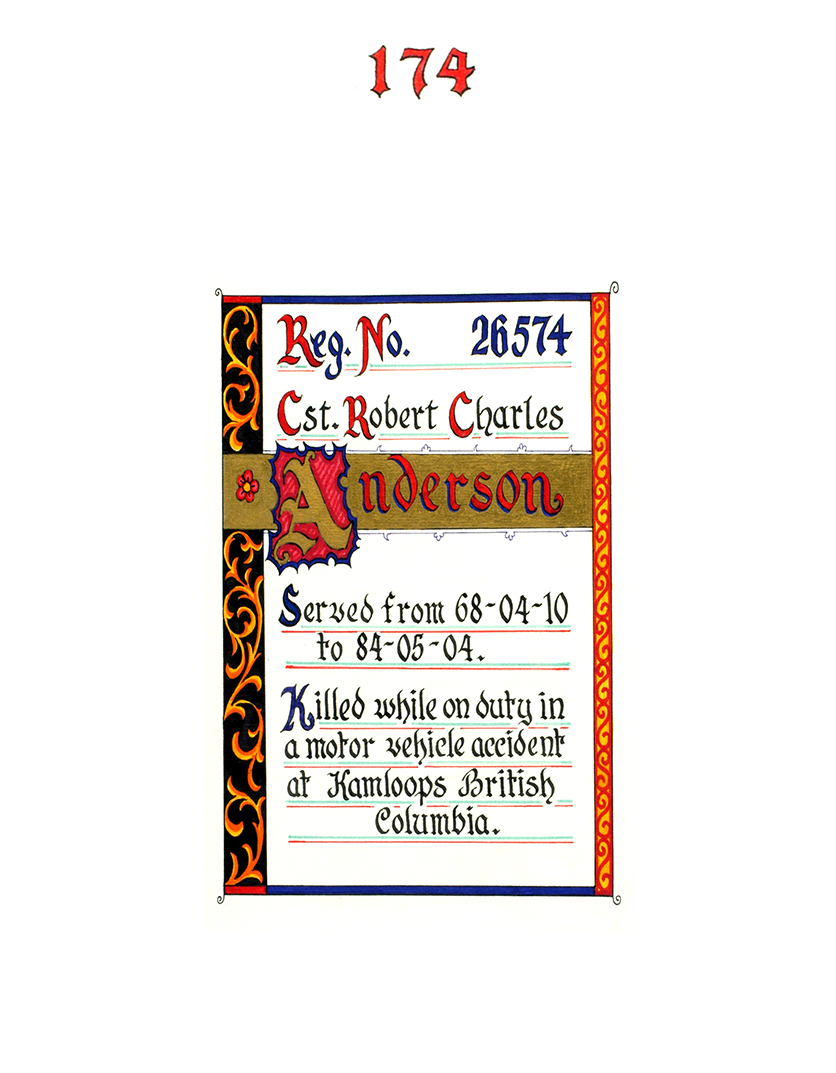 174
Reg. No. 26574
Cst. Robert Charles
Anderson
Served from 68-04-10
to 84-05-04.
Killed while on duty in
a motor vehicle accident
at Kamloops British
Columbia.